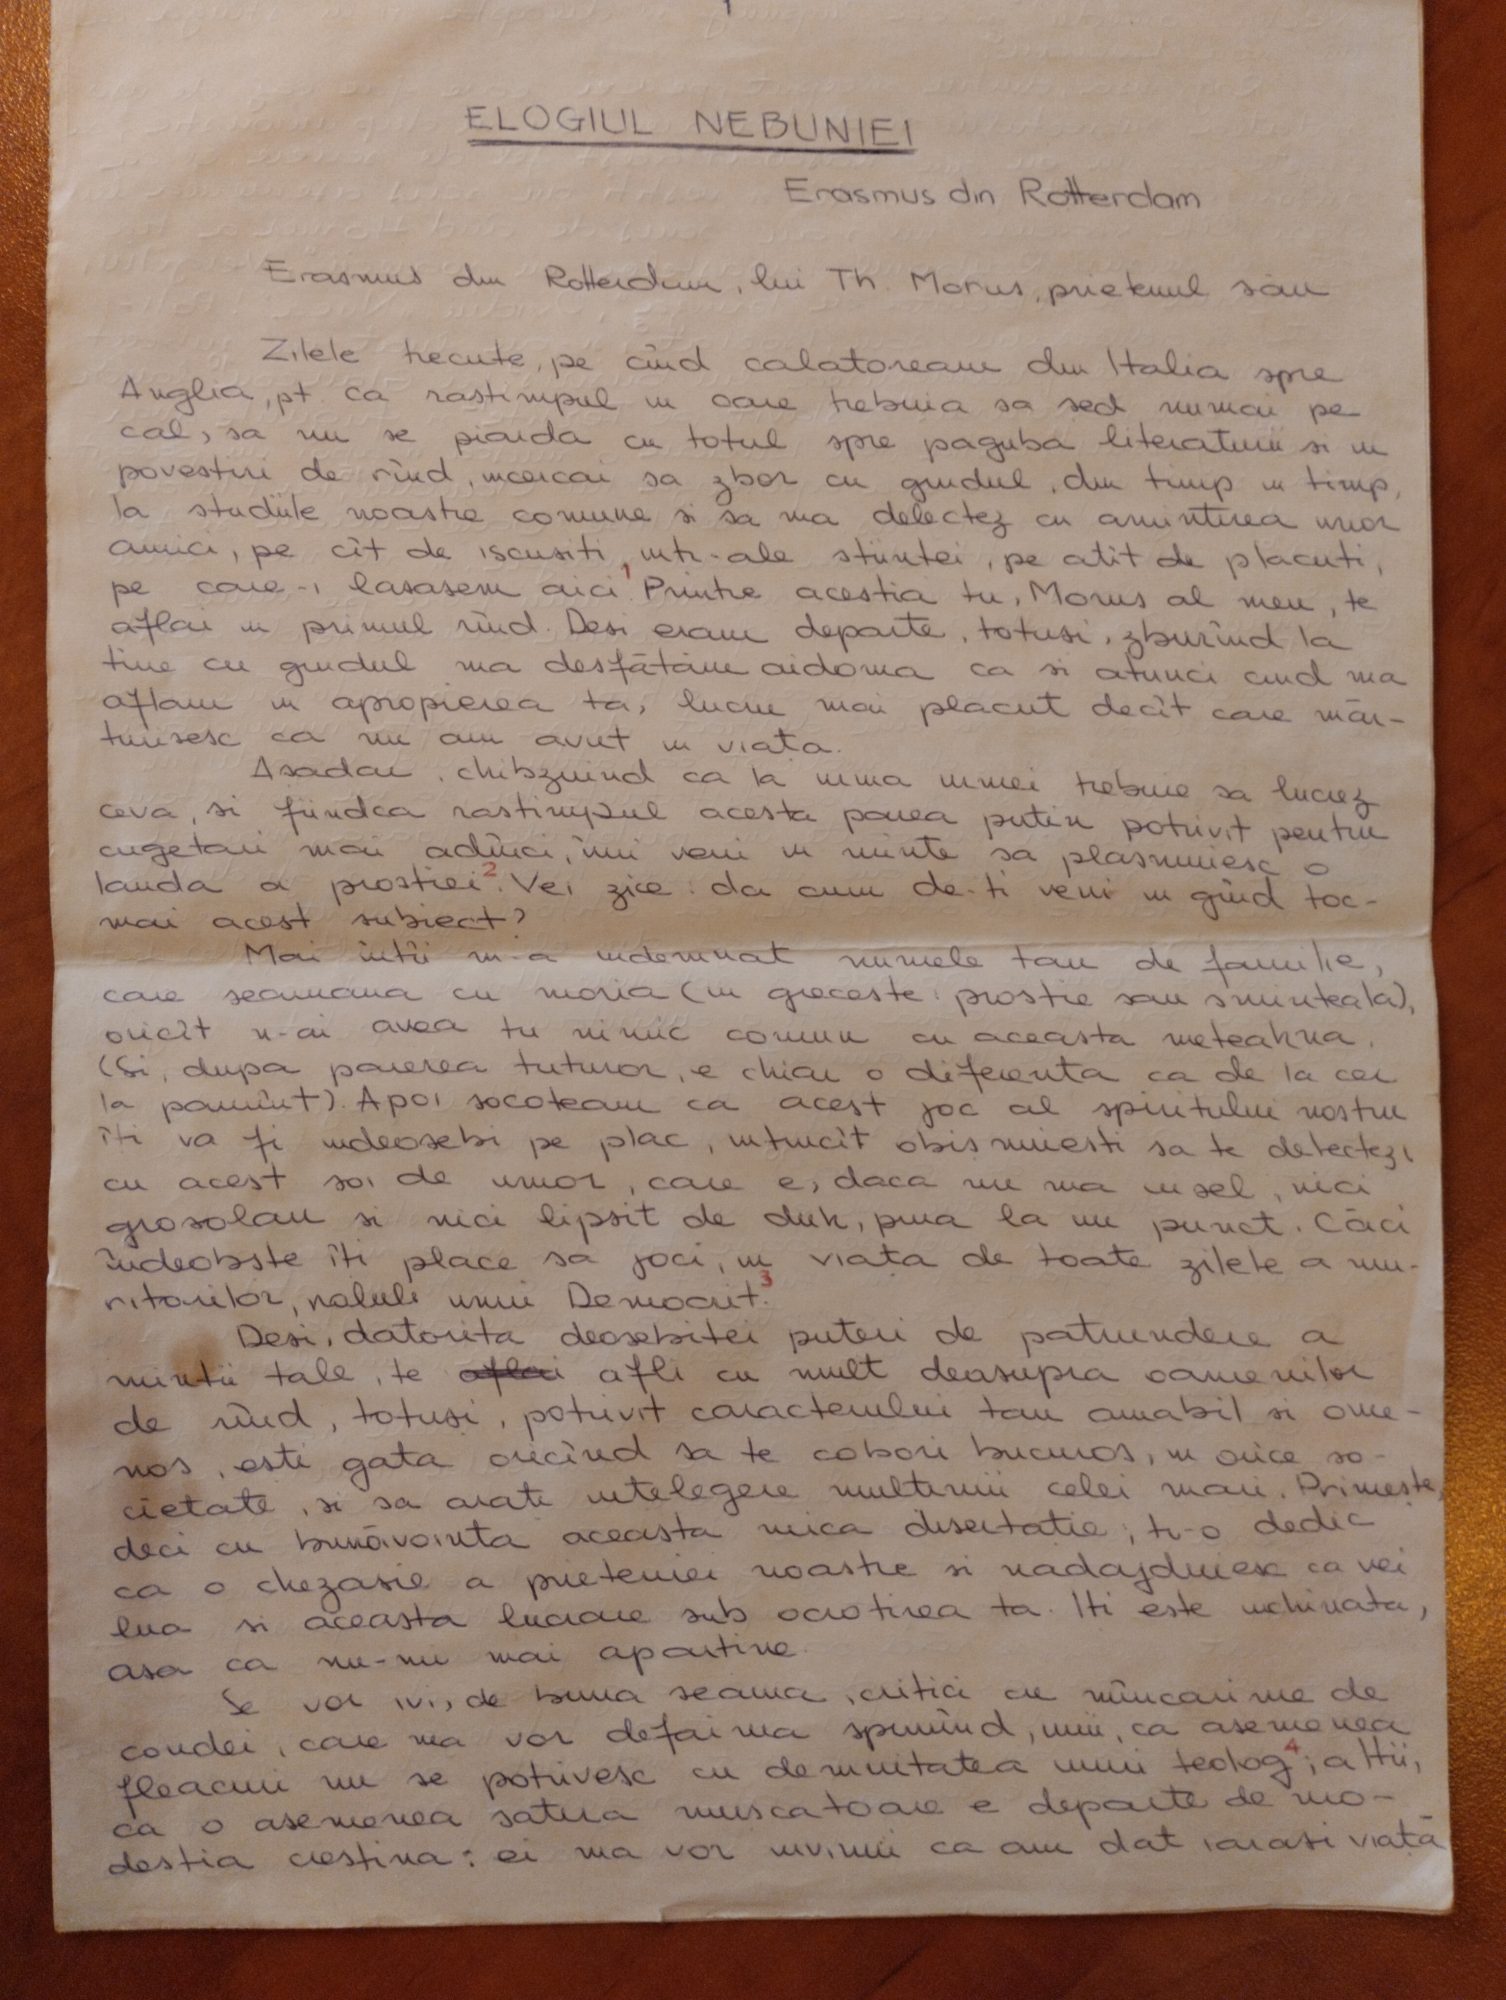 ELOGIUL NEBUNIEI
Erasmus din Rotterdam
Erasmus din Rotterdam, lui Th. Morus, prietenul său
Zilele trecute, pe cînd calatoream din Italia spre
Anglia, pt. ca rastimpul in care trebuia sa sed numai pe
cal, sa nu se piarda cu totul spre paguba literaturii si in
povestiri de rînd, incercai sa zbor cu gindul, din timp in timp,
la studiile noastre comune si sa ma delectez cu amintirea unor
amici, pe cît de iscusiti intr-ale stiintei, pe atit de placuti,
pe care-i lasasem aici.1 Printre acestia tu, Morus al meu, te
aflai in primul rînd. Desi eram departe, totusi, zburînd la
tine cu gindul ma desfătăm aidoma ca si atunci cind ma
aflam in apropierea ta, lucru mai placut decît care măr-
turisesc ca nu am avut in viața.
Asadar, chibzuind ca la urma urmei trebuie sa lucrez
ceva, si fiindca rastimpul acesta parea putin potrivit pentru
cugetari mai adînci, îmi veni in minte sa plasmuiesc o
lauda a prostiei2. Vei zice: da cum de-ti veni in gînd toc-
mai acest subiect?
Mai întîi m-a indemnat numele tau de familie,
care seamana cu moria (in greceste: prostie sau sminteala),
oricît n-ai avea tu nimic comun cu aceasta meteahna.
(Si, dupa parerea tuturor, e chiar o diferenta ca de la cer
la pamînt). Apoi socoteam ca acest joc al spiritului nostru
îti va fi indeosebi pe plac, intrucît obisnuiesti sa te delectezi
cu acest soi de umor, care e, daca nu ma insel, nici
grosolan si nici lipsit de duh, pina la un punct. Căci
îndeobste îti place sa joci, in viața de toate zilele a mu-
ritorilor, rolul unui Democrit.3
Desi, datorita deosebitei puteri de patrundere a
mintii tale, te aflai afli cu mult deasupra oamenilor
de rînd, totuși, potrivit caracterului tau amabil si ome-
nos, esti gata oricînd sa te cobori bucuros, in orice so-
cietate, si sa arati intelegere multimii celei mari. Primește,
deci cu bunăvointa aceasta mica disertatie; ti-o dedic
ca o chezasie a prieteniei noastre si nadajduiesc ca vei
lua si aceasta lucrare sub ocrotirea ta. Iti este inchinata,
asa ca nu-mi mai apartine.
Se vor ivi, de buna seama, critici cu mîncarime de
condei, care ma vor defaima spunînd, unii, ca asemenea
fleacuri nu se potrivesc cu demnitatea unui teolog4; altii,
ca o asemenea satira muscatoare e departe de mo-
destia crestina: ei ma vor invinui ca am dat iarasi viață